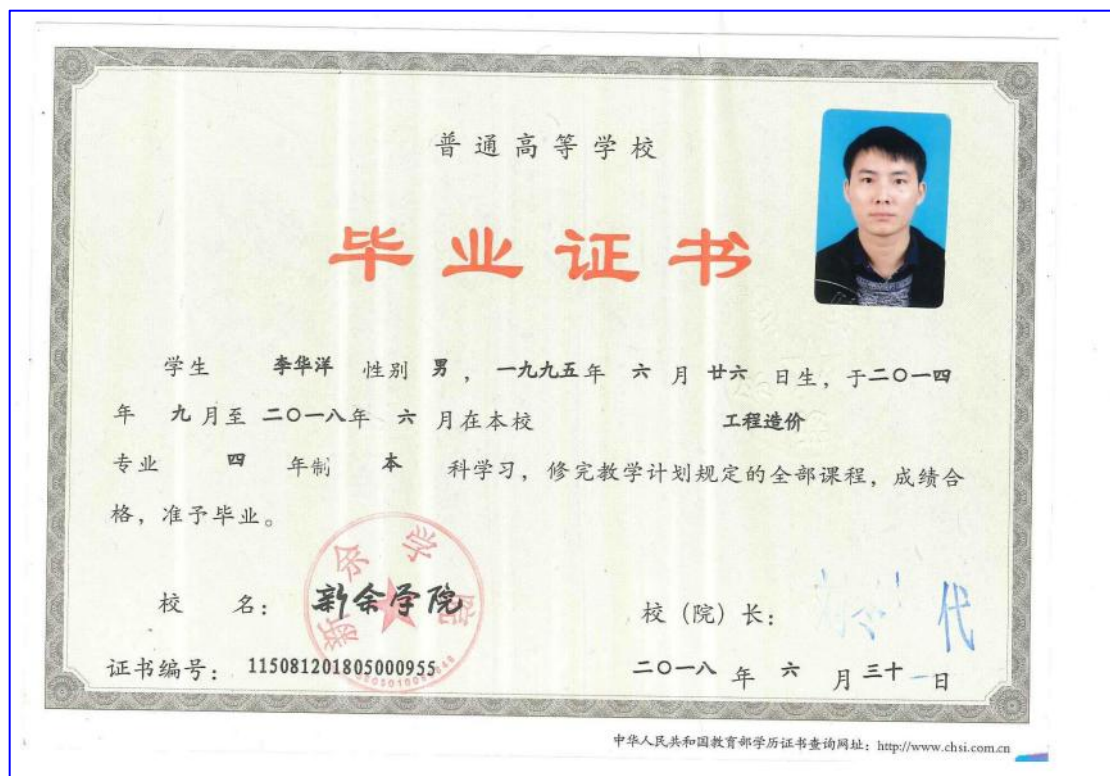 普通高等学校
毕业证书
学生 李华洋 性别 男，一九九五年 六 月 廿六 日生，于二〇一四
年 九月至 二〇一八年 六 月在本校 工程造价
专业 四 年制 本 科学习，修完教学计划规定的全部课程，成绩合
格，准予毕业。
新余学院
校 名：新余学院
校（院）长： 代
证书编号：115081201805000955
二〇一八 年 六 月三十日
中华人民共和国教育部学历证书查询网址：http://www.chsi.com.cn